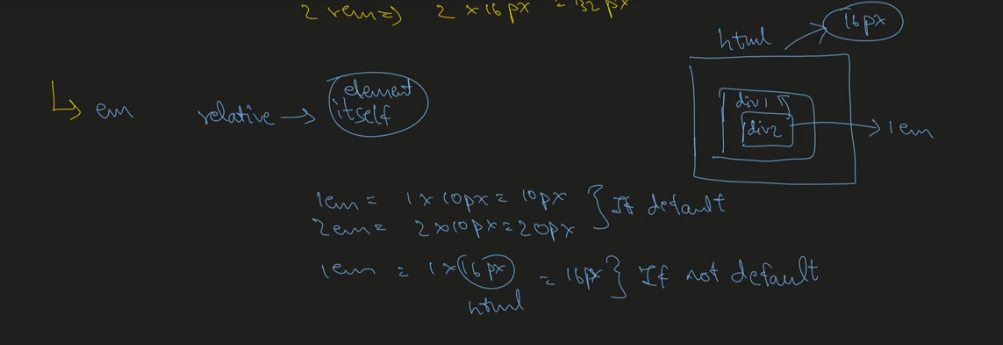 2 rem => 2 x 16px = 32px
html
16px
em relative → element itself
div1
div2 → 1em
1em = 1 x 10px = 10px } If default
2em = 2x10px = 20px
1em = 1 x 16px = 16px } If not default
html